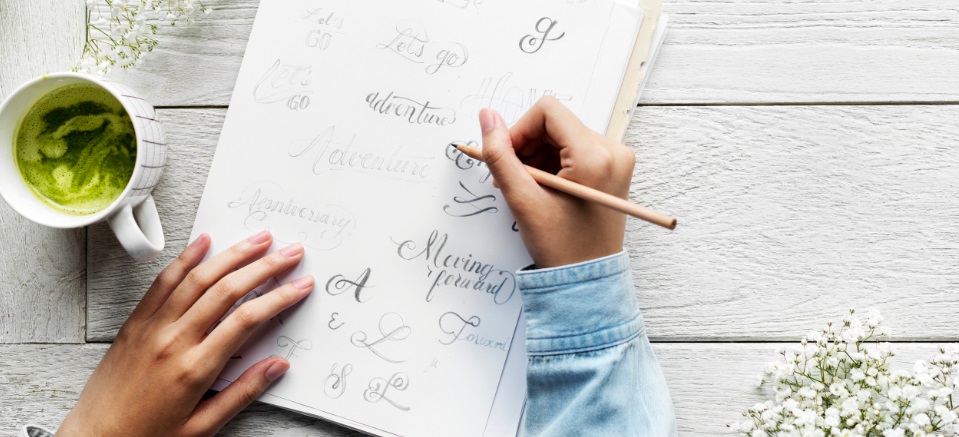 Let's
GO
Let's go
g
Let's
GO
adventures
Adventure
Anniversary
Moving
forward
A
E
L
Forward
F
S
L